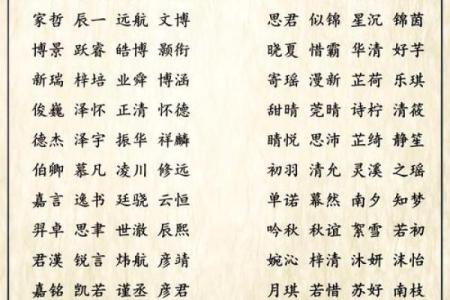 家哲 辰一 远航 文博 思君 似锦 星沉 锦茵
博景 跃睿 皓博 颢衔 晓夏 惜霸 华清 好芋
新瑞 梓培 业舜 博涵 寄瑶 漫新 芷荷 乐琪
俊巍 泽怀 正清 怀德 甜晴 莞晴 诗柠 清筱
德杰 泽宇 振华 祥麟 晴悦 思沛 芷绮 静笙
伯卿 慕凡 凌川 修远 初羽 清允 灵溪 之瑶
嘉言 逸书 廷骁 云恒 单诺 慕然 南夕 知梦
羿卓 思聿 世澈 辰熙 吟秋 秋谊 絮雪 若初
君漠 锐言 炜航 彦靖 婉沁 梓清 沐妍 沫怡
嘉铭 凯若 谨丞 彦君 月琪 若惜 苏好 南枝